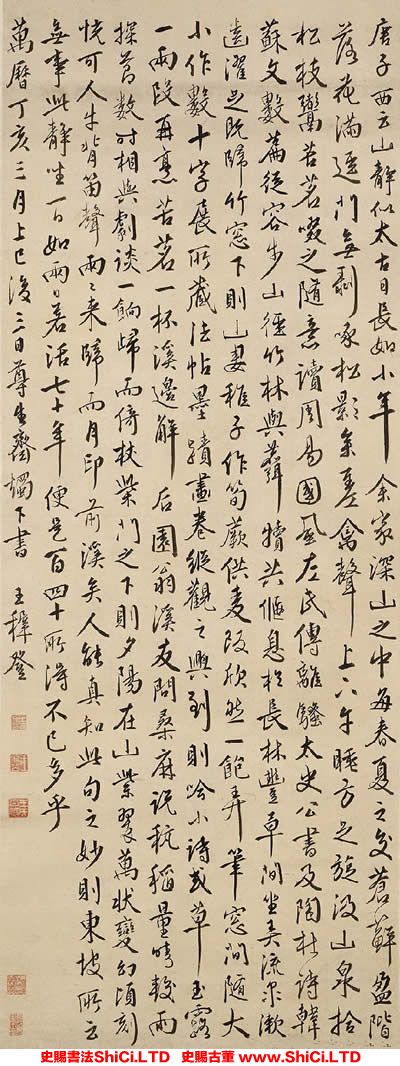 唐子西云山靜似太古日長如小年余家深山之中每春夏之交蒼蘚盈階
落花滿逕門無剝啄松影參差禽聲上下午睡方足旋汲山泉拾
松枝鬻苦茗啜之隨意讀周易國風左氏傳離騷太史公書及陶杜詩韓
蘇文數篇從容步山徑竹林與麛犢共偃息於長林豐草間坐弄流泉漱
齒濯足既歸竹窓下則山妻稚子作筍蕨供麦飯欣然一飽弄筆窓間隨大
小作數十字展所藏法帖墨蹟畫卷縱觀之興到則吟小詩或草玉露
一兩段再烹苦茗一杯溪邊解后園翁溪友問桑麻說秔稻量晴較雨
探節數时相與劇談一餉歸而倚杖柴門之下則夕陽在山紫翠萬状變幻頃刻
恍可人牛背笛聲兩兩来歸而月印前溪矣人能真知此句之妙則東坡所云
無事此靜坐一日如兩日若活七十年便是百四十所得不已多乎
萬曆丁亥三月上巳後三日尊生齋燭下書 王穉登
史賜書法ShiCi.LTD 史賜古董 www.ShiCi.LTD